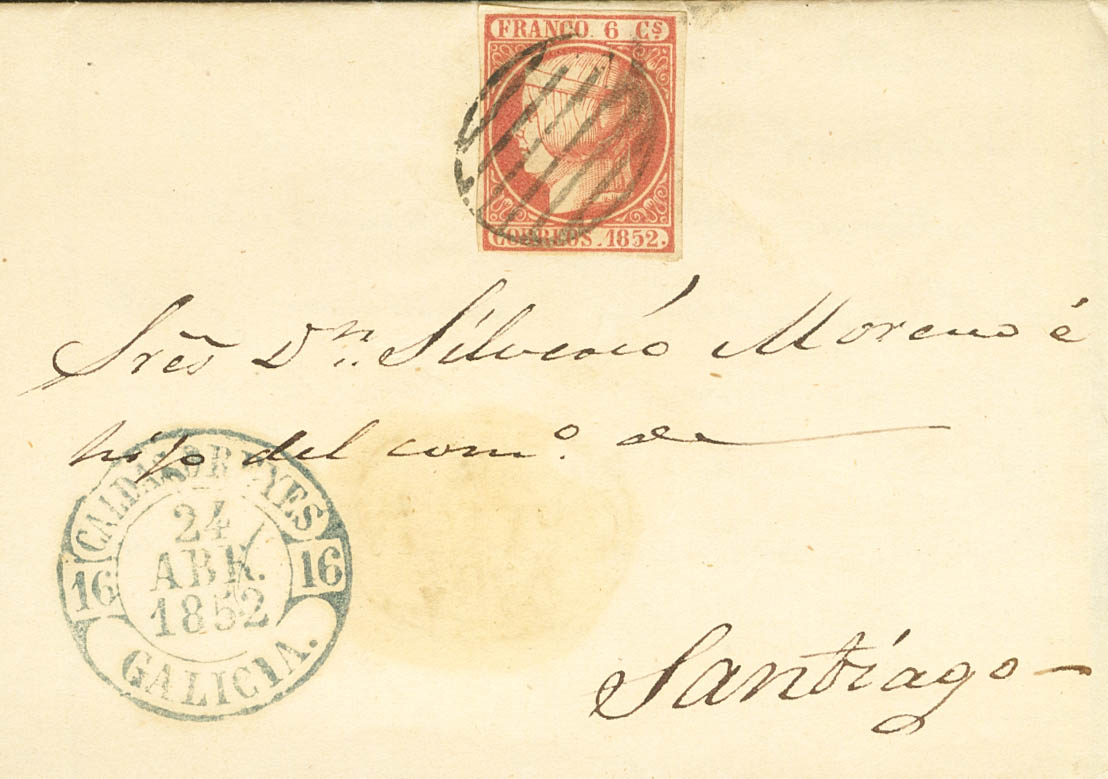 FRANCO. 6 Cs
CORREOS. 1852.
Sres Dn. Silverio Moreno é
hijo del comº. de
CALDAS DE REYES
24
ABR.
1852
16 16
GALICIA.
Santiago